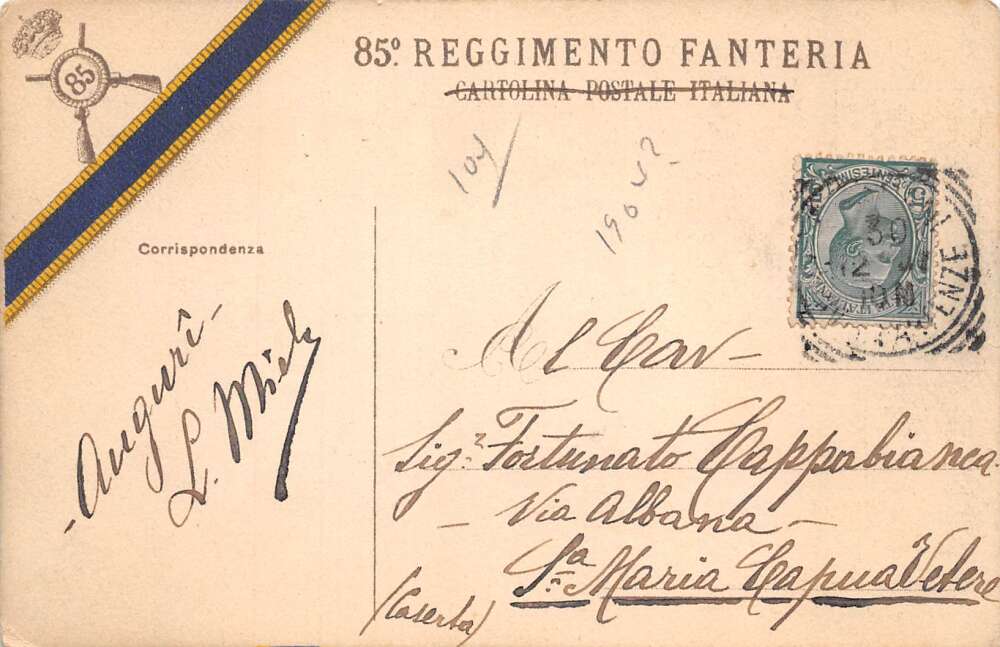 85
85º REGGIMENTO FANTERIA
CARTOLINA POSTALE ITALIANA
104
190
Corrispondenza
CENTESIMI
30
12
10 M
FIRENZE
- Augurî -
L. Miele
Al Cav -
Sig.r Fortunato Cappabianca
- Via Albana -
S.a Maria Capua Vetere
(Caserta)